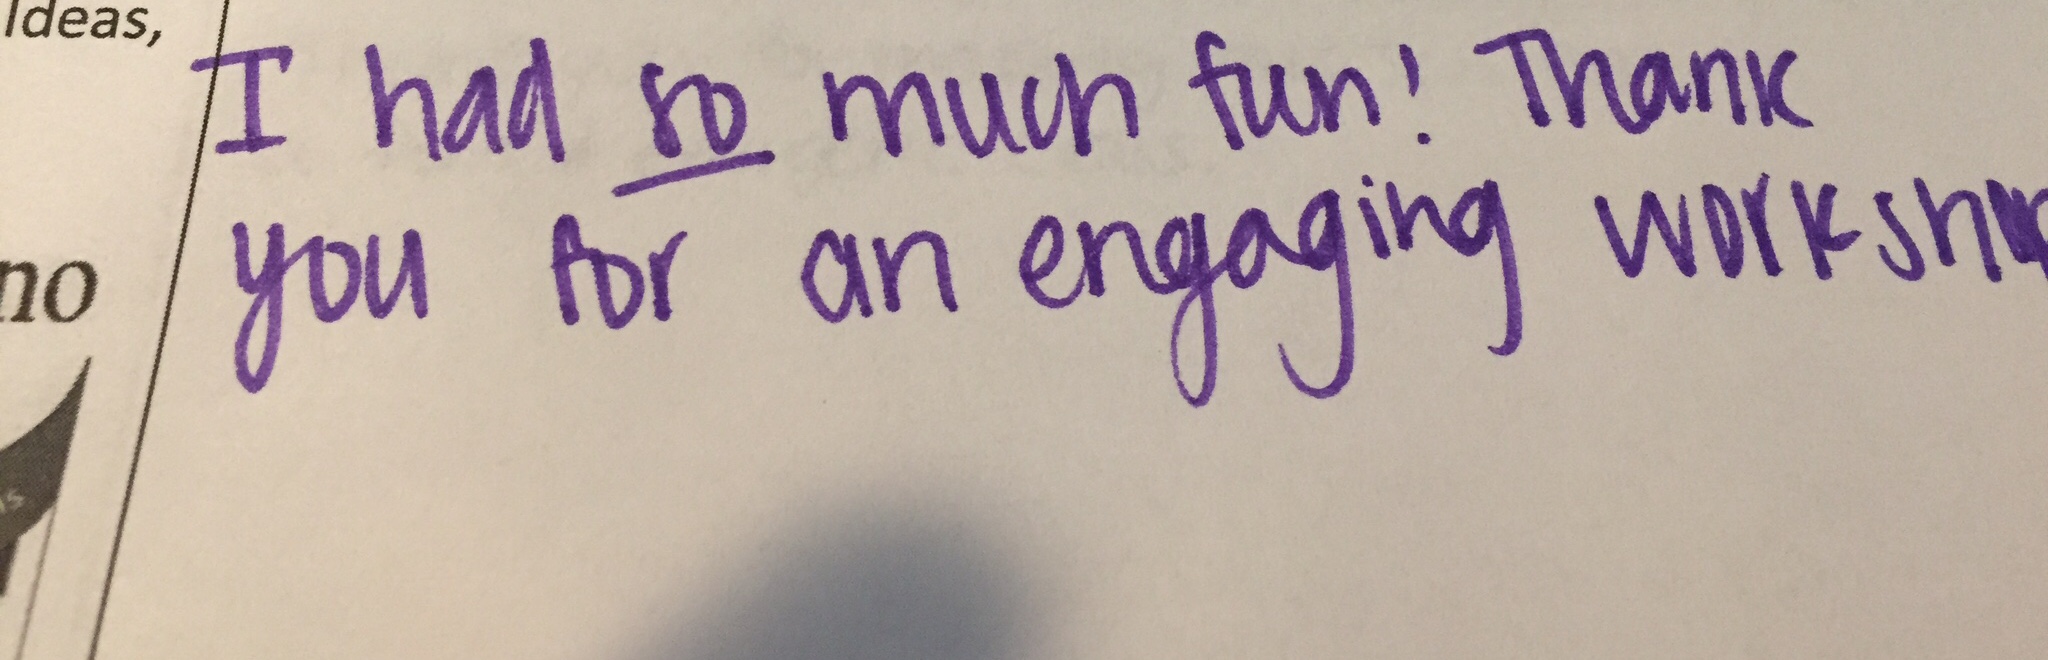 Ideas,
I had so much fun! Thank
you for an engaging workshop
no